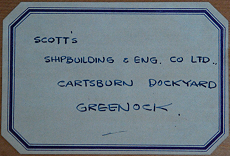 SCOTT'S
SHIPBUILDING & ENG. CO LTD.,
CARTSBURN DOCKYARD
GREENOCK.